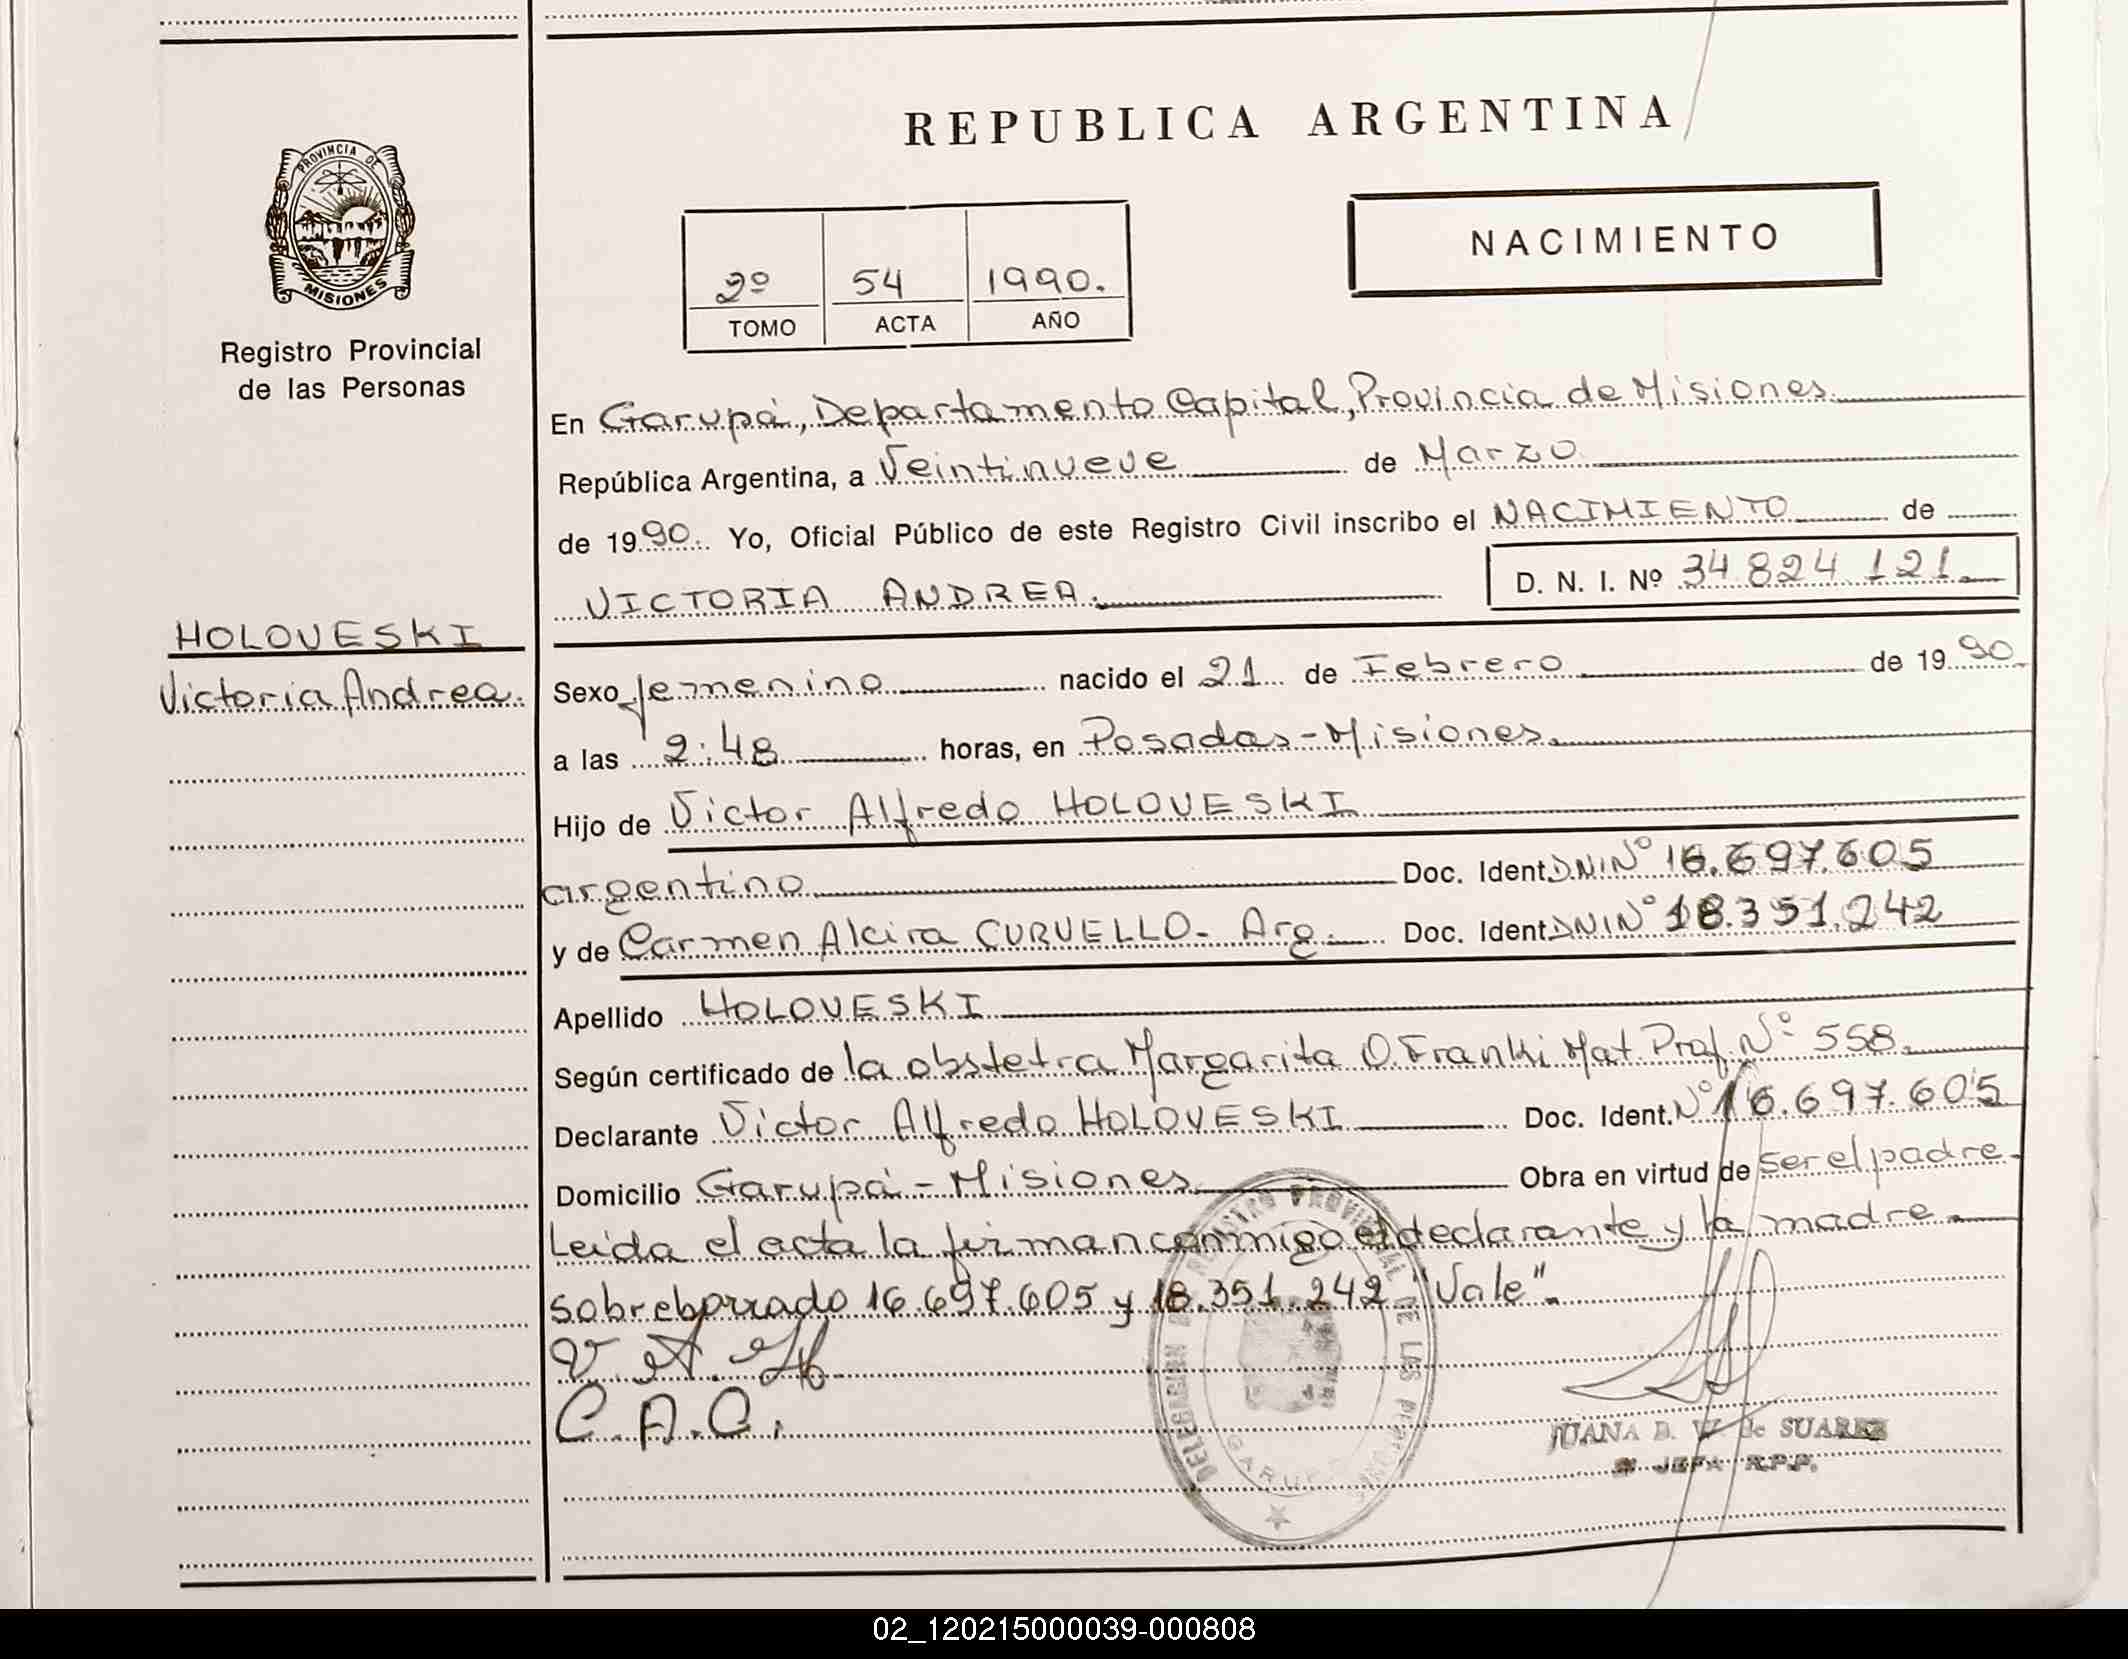 REPUBLICA ARGENTINA
PROVINCIA DE
MISIONES
Registro Provincial
de las Personas
2º 54 1990.
TOMO ACTA AÑO
NACIMIENTO
En Garupá, Departamento Capital, Provincia de Misiones
República Argentina, a Veintinueve de Marzo
de 1990. Yo, Oficial Público de este Registro Civil inscribo el NACIMIENTO de
VICTORIA ANDREA.
D. N. I. Nº 34824121.
HOLOVESKI
Victoria Andrea.
Sexo femenino nacido el 21 de Febrero de 1990
a las 2:48 horas, en Posadas-Misiones.
Hijo de Victor Alfredo HOLOVESKI
argentino Doc. Ident. DNI Nº 16.697.605
y de Carmen Alcira CURVELLO- Arg. Doc. Ident. DNI Nº 18.351.242
Apellido HOLOVESKI
Según certificado de la obstetra Margarita O. Franki Mat. Prof. Nº 558.
Declarante Victor Alfredo HOLOVESKI Doc. Ident. Nº 16.697.605
Domicilio Garupá-Misiones Obra en virtud de ser el padre.
Leida el acta la firman conmigo el declarante y la madre.
sobreborrado 16.697.605 y 18.351.242 "Vale".
V. A. H.
C. A. C.
DELEGACION REGISTRO PROVINCIAL DE LAS PERSONAS
GARUPA
JUANA B. de SUAREZ
JEFA R.P.P.
02_120215000039-000808